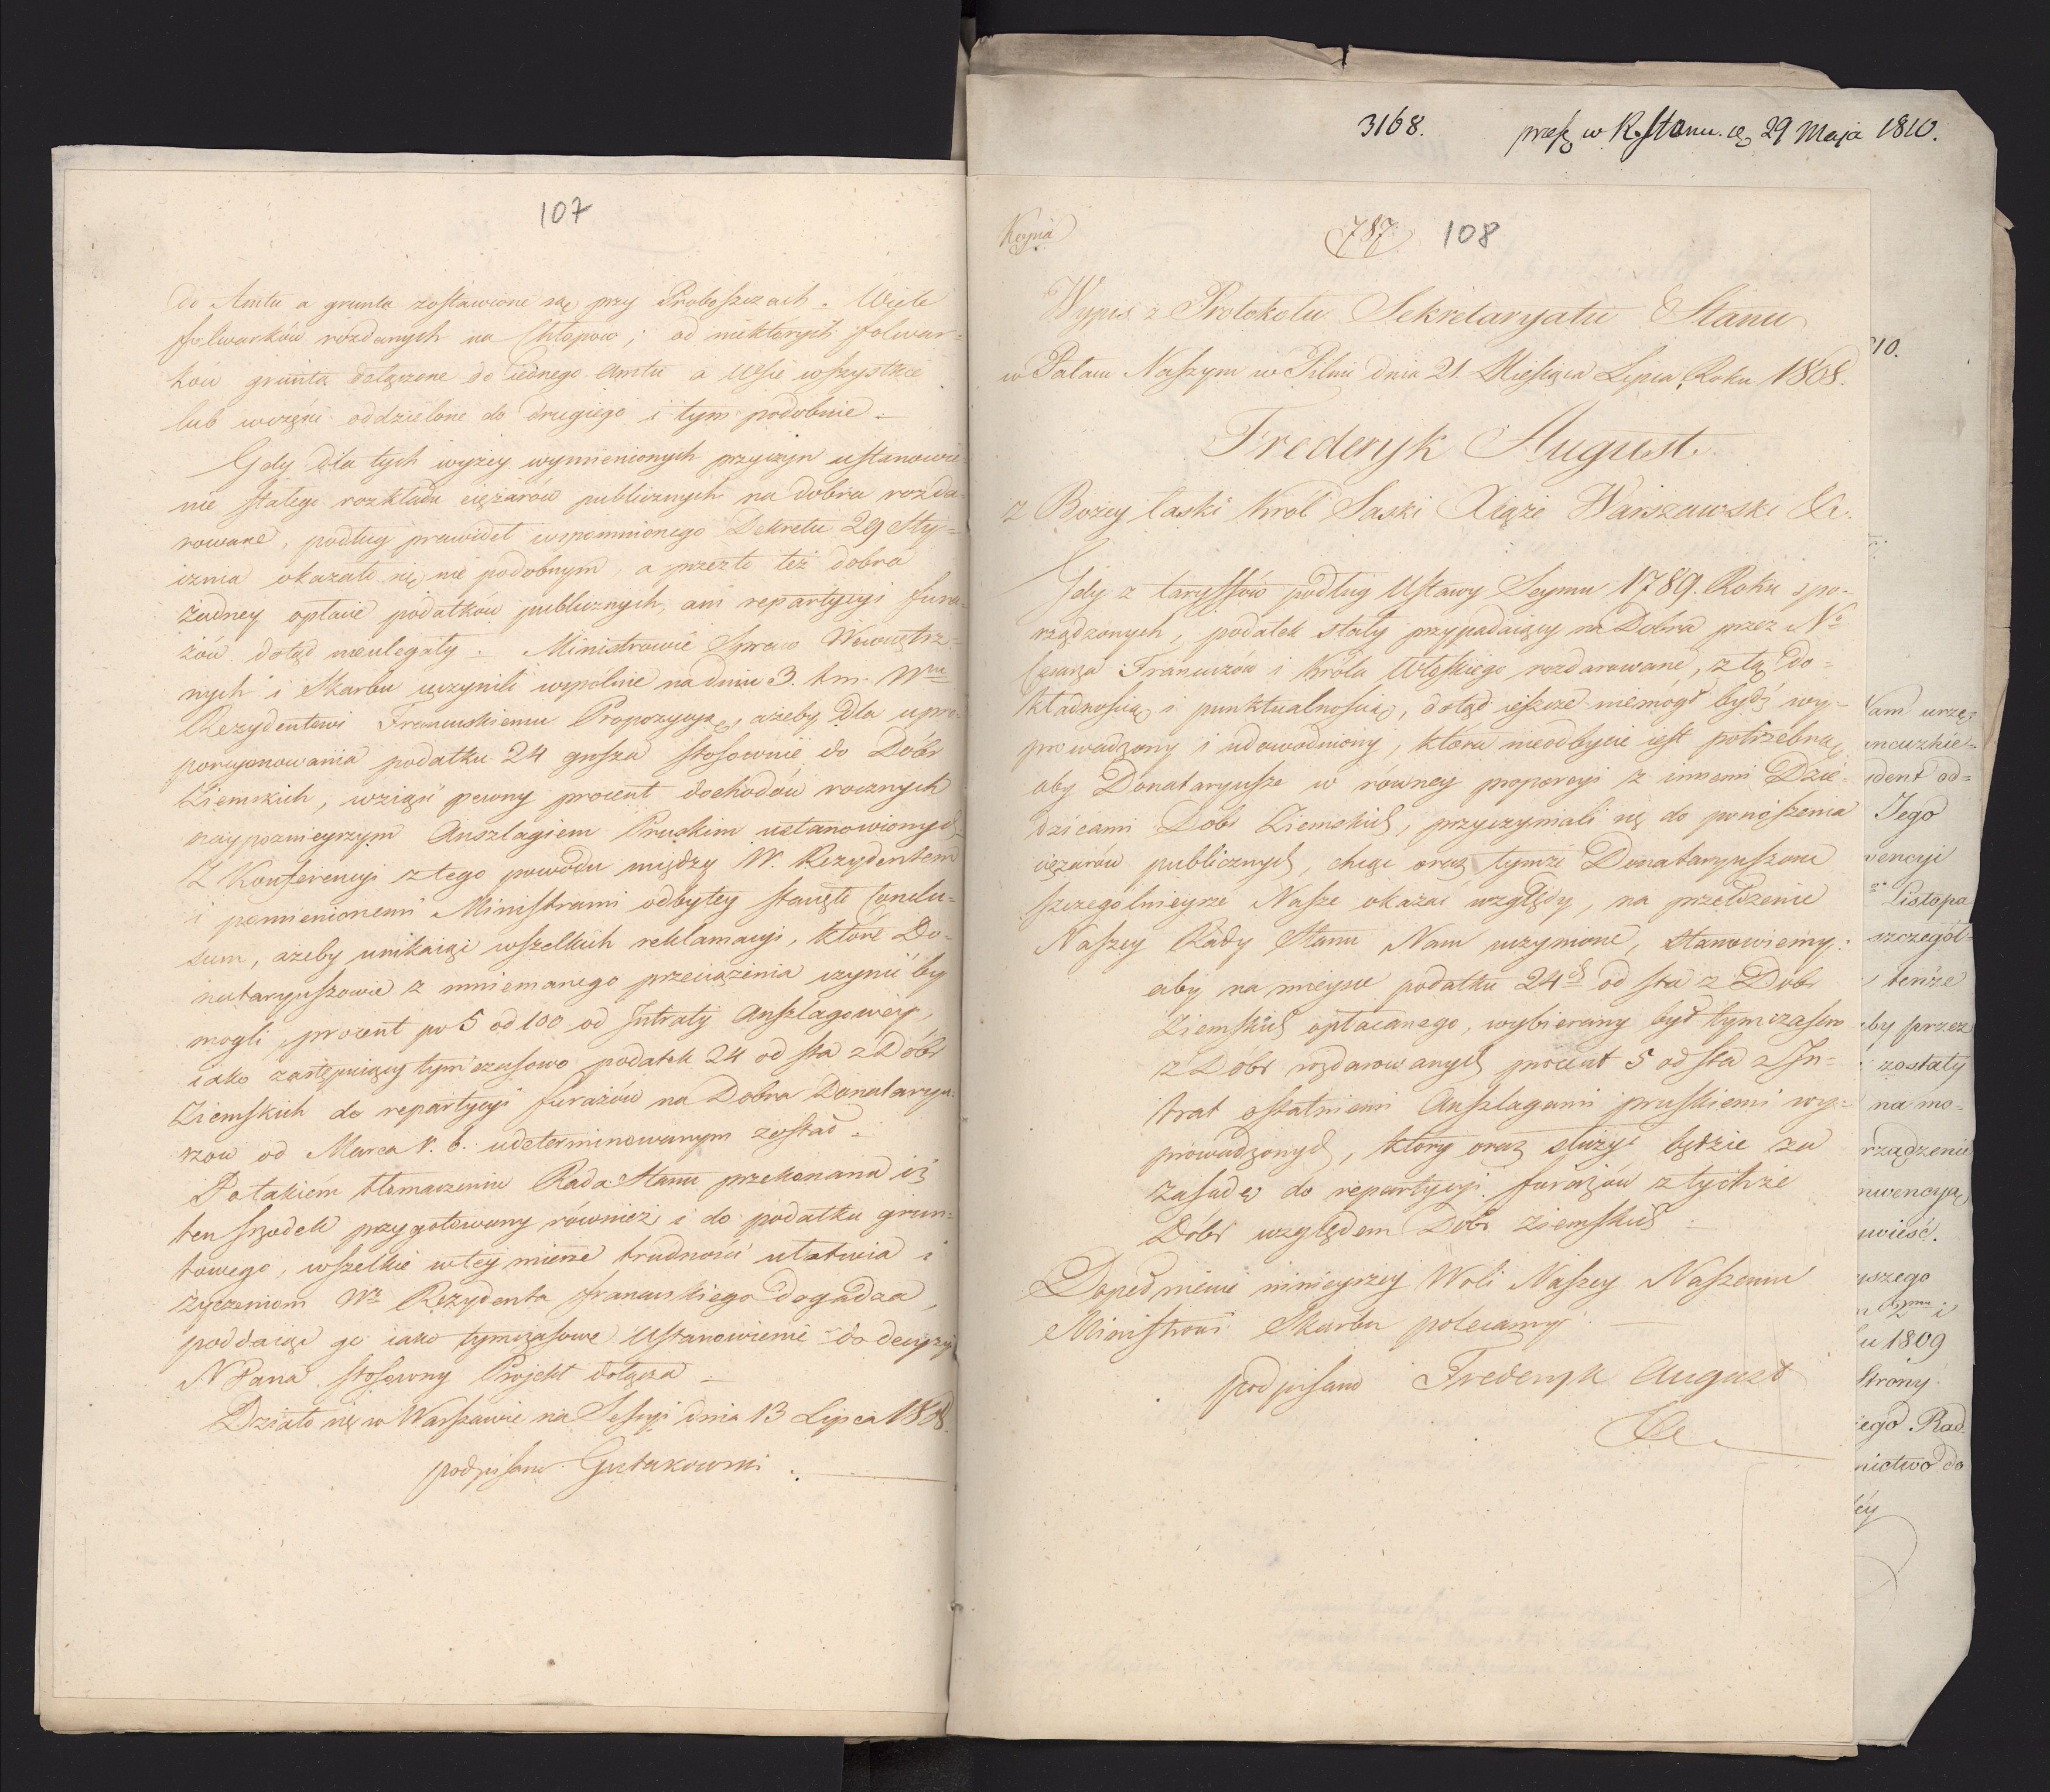 107
do Amtu a grunta zostawione są przy Proboszczach. Wiele
folwarków rozdanych na Chłopow; od niektorych folwar=
kow grunta dołączone do iednego Amtu a Wsie wszystkie
lub wczęści oddzielone do drugiego i tym podobnie.
Gdy dla tych wyżey wymienionych przyczyn ustanowie=
nie stałego rozkładu ciężarów publicznych na dobra rozda=
rowane, podług prawideł wspomnionego Dekretu 29 Sty=
cznia okazało się nie podobnym, a przezto też dobra
żadney opłacie podatków publicznych, ani repartycyi fura=
żów dotąd nieulegały. Ministrowie Spraw Wewnętrz=
nych i Skarbu uczynili wspólnie na dniu 3. t.m. Wmu
Rezydentowi Francuskiemu Propozycyą, ażeby dla upro=
porcyonowania podatku 24 grosza stosownie do Dóbr
Ziemskich, wziąść pewny procent dochodów rocznych
naypoznieyszym Anszlagiem Pruskim ustanowionych
Z Konferencyi ztego powodu między W. Rezydentem
i pomienionemi Ministrami odbytey stanęło Conclu=
sum, ażeby unikaiąc wszelkich reklamacyi, które Do=
nataryuszowie z mniemanego przeciążenia czynić by
mogli, procent po 5 od 100 od Intraty Anszlagowey,
iako zastępuiący tymczasowo podatek 24 od sta z Dóbr
Ziemskich do repartycyi furażów na Dobra Donataryu=
szow od Marca r. b. udeterminowanym został.
Po takiém tłomaczeniu Rada Stanu przekonana iż
ten srzodek przygotowany również i do podatku grun=
towego, wszelkie wtey mierze trudności ułatwia i
życzeniom Wo Rezydenta francuskiego dogadza,
poddaiąc go iako tymczasowe Ustanowienie do decyzyi
N Pana stosowny Projekt dołącza.
Działo się w Warszawie na Sessyi dnia 13 Lipca 1808.
podpisano Gutakowski.
3168. w R. Stanu. 29 Maja 1810.
Kopia
787 108
Wypis z Protokołu Sekretaryatu Stanu
w Pałacu Naszym w Pilnic dnia 21. Miesiąca Lipca Roku 1808.
Fryderyk August
z Bożey łaski Król Saski Xiąże Warszawski &c.
Gdy z taryffów podług Ustawy Seymu 1789. Roku spo=
rządzonych, podatek stały przypadaiący na Dobra przez No
Cesarza Francuzów i Króla Włoskiego rozdarowane, z tą do=
kładnością i punktualnością, dotąd ieszcze niemógł bydź wy=
prowadzony i udowodniony, która nieodbycie iest potrzebną,
aby Donataryusze w równey proporcyi z innemi Dzie=
dzicami Dobr Ziemskich, przyczymali się do ponoszenia
ciężarów publicznych, chcąc oraz tymże Donataryuszom
szczegolnieysze Nasze okazać względy, na przełożenie
Naszey Rady Stanu Nam uczynione, stanowiemy:
aby na mieysce podatku 24ch od sta z Dobr
Ziemskich opłacanego, wybierany był tymczasowo
z Dóbr rozdarowanych procent 5 od sta z In=
trat ostatniemi Anszlagami pruskiemi wy=
prowadzonych, który oraz służyć będzie za
zasadę do repartycyi furażów z tychże
Dóbr względem Dóbr ziemskich.
Dopełnienie ninieyszey Woli Naszey Naszemu
Ministrowi Skarbu polecamy.
podpisano Fryderyk August
&c.
10.
Nam urzę=
ancuzkie=
ident od=
Jego
wencyi
Listopa
szczegól=
tenże
by przez
zostały
na mo=
rządzenie
nwencyą
wieść.
yszego
u 1809
Strony
iego Rad
nictwo do